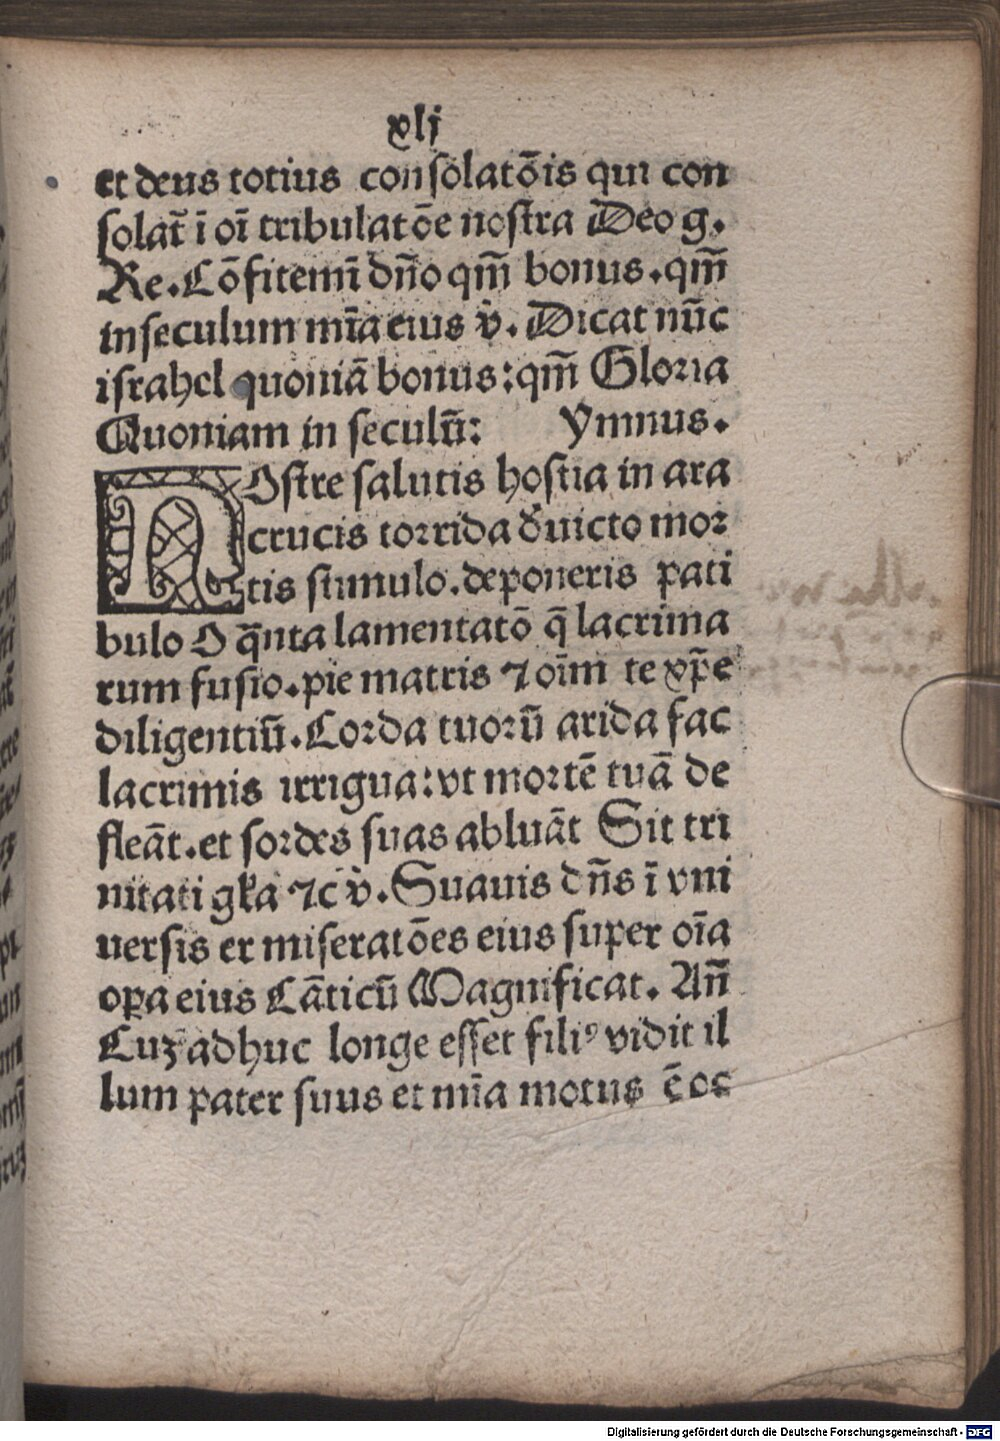 xlj
et deus totius consolatōis qui con
solat̄ ī oī tribulatōe nostra Deo g.
Re. Cōfitemī dn̄o qm̄ bonus. qm̄
in seculum mīa eius v̇. Dicat nūc
israhel quoniā bonus: qm̄ Gloria
Quoniam in seculū: Ymnus.
NOstre salutis hostia in ara
crucis torrida d̕uicto mor
tis stimulo. deponeris pati
bulo O q̄nta lamentatō q̄ lacrima
rum fusio. pie matris ⁊ oīm te xp̄e
diligentiū. Corda tuorū arida fac
lacrimis irrigua: vt mortē tuā de
fleāt. et sordes suas abluāt Sit tri
nitati gl̄ia ⁊c v̇. Suauis dn̄s ī vni
uersis et miseratōes eius super oīa
oꝑa eius Cāticū Magnificat. An̄
Cuꝫ adhuc longe esset filiꝰ vidit il
lum pater suus et mīa motus ē oc
Digitalisierung gefördert durch die Deutsche Forschungsgemeinschaft - DFG